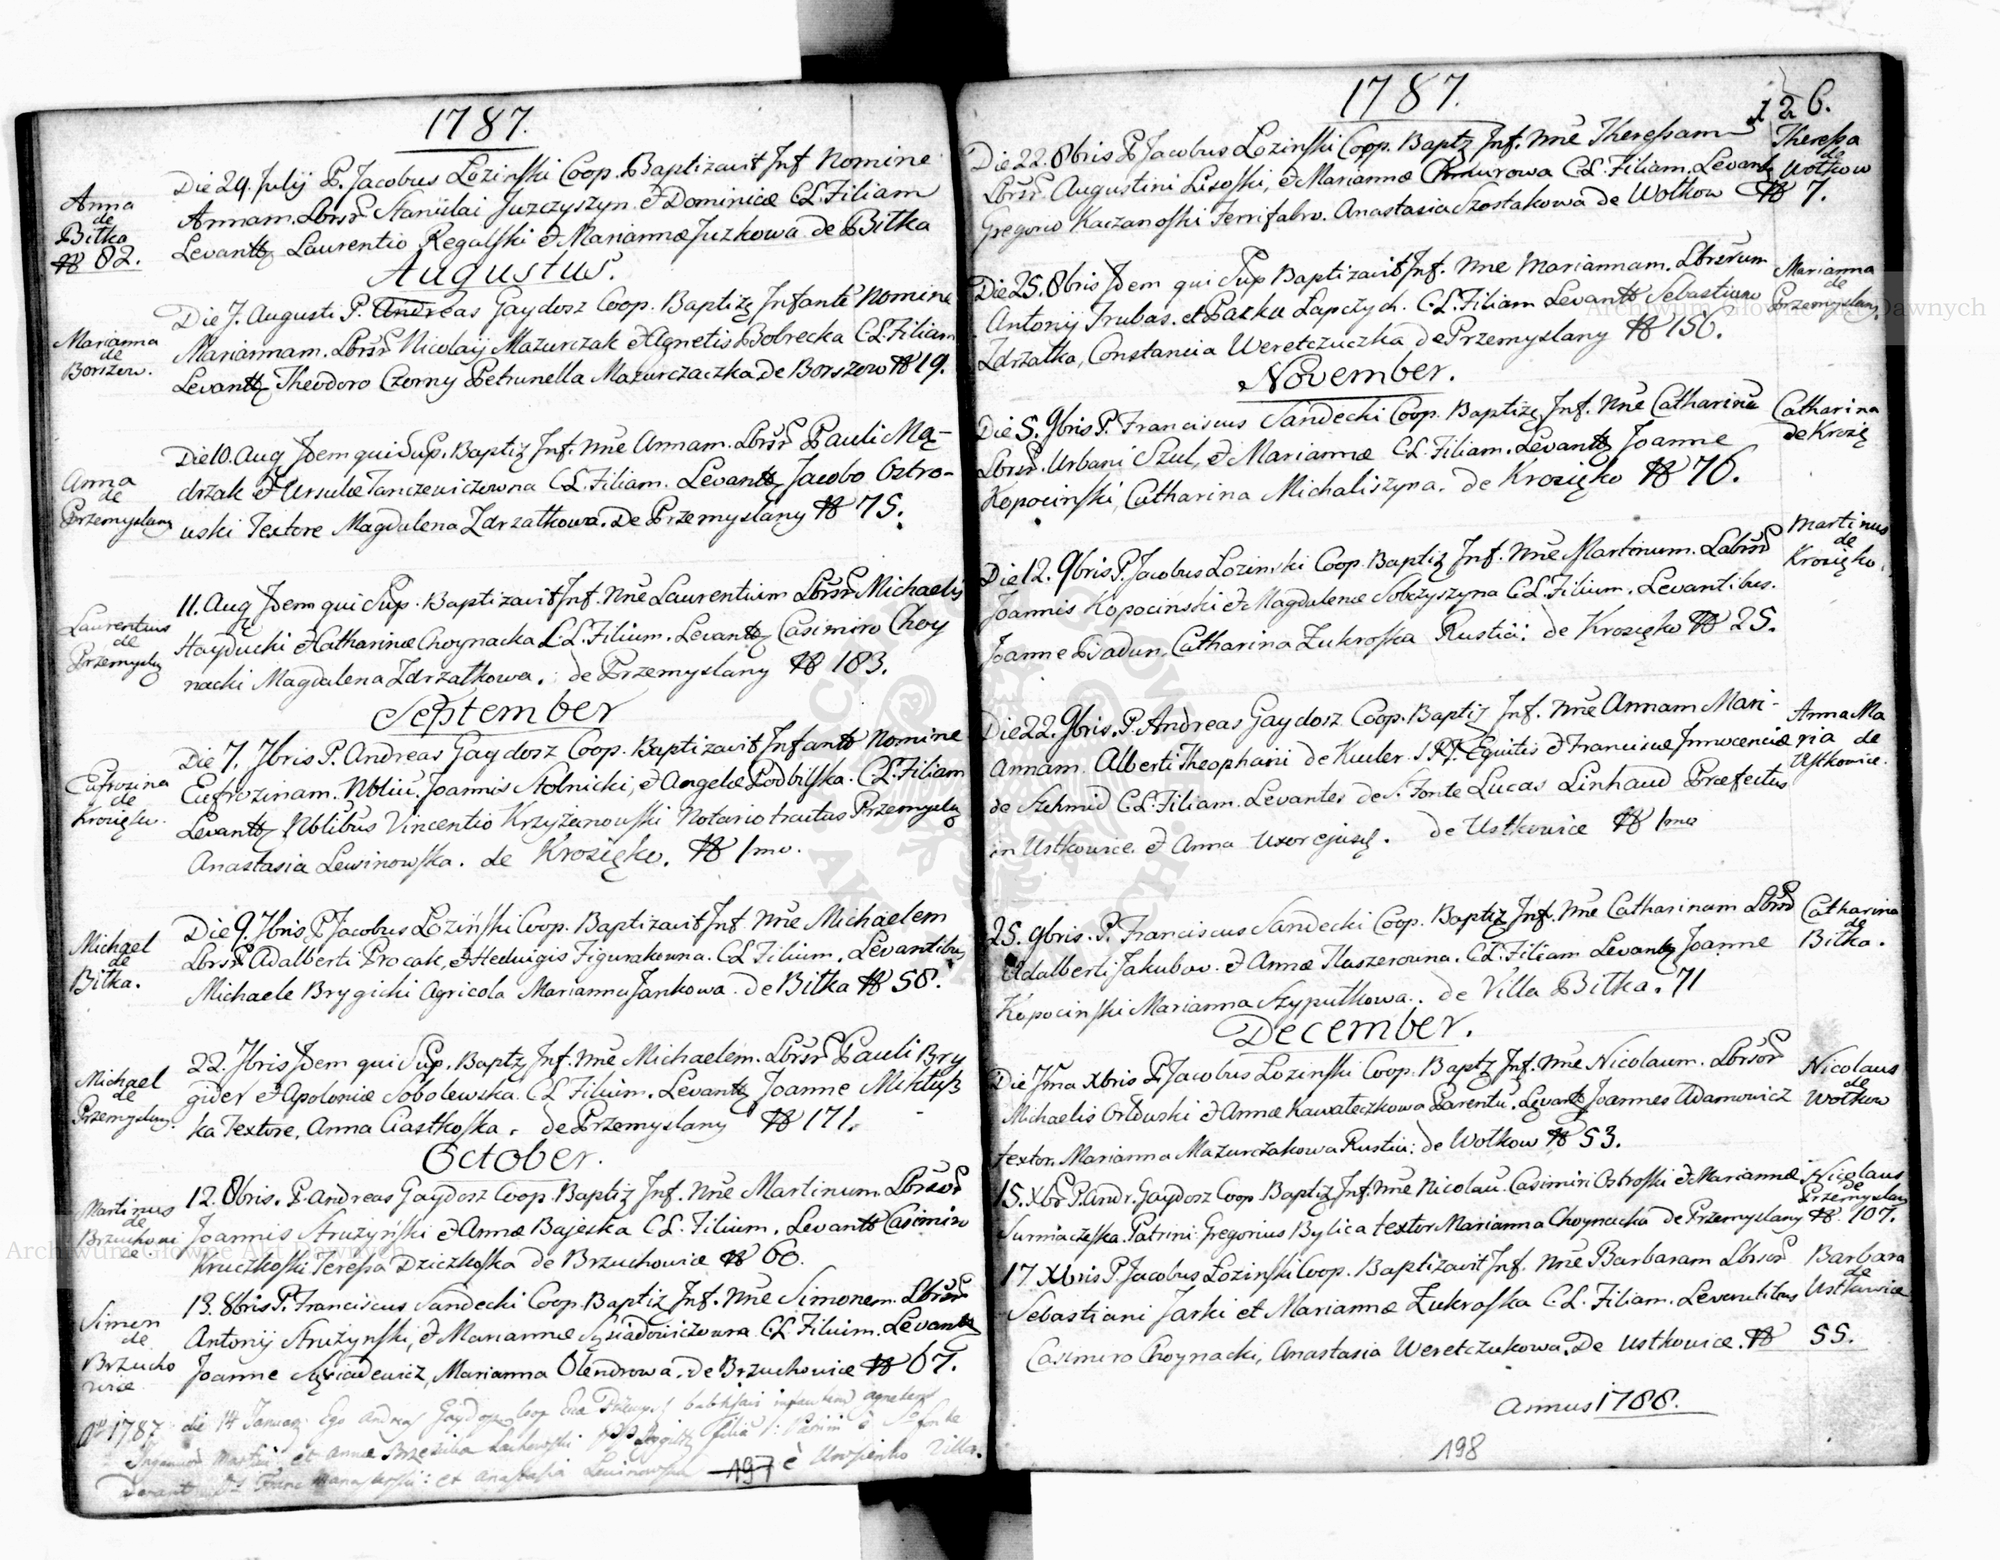 1787.
Anna
de
Bitka
No 82.
Die 29. Julij P. Jacobus Lozinski Coop. Baptizavit Inf. Nomine
Annam. Lbrsr Stanislai Juzczyszyn & Dominicæ C.L. Filiam
Levantt Laurentio Regalski & Mariannæ Juzkowa de Bitka
Augustus.
Marianna
de
Borszow.
Die 7. Augusti P. Andreas Gaydosz Coop. Baptiz Infante Nomine
Mariannam. Lbrsr Nicolaij Mazurczak & Agnetis Bobrecka C.L. Filiam
Levantt Theodoro Czorny Petrunella Mazurczaczka De Borszow No 19.
Anna
de
Przemyslany
Die 10. Aug Idem qui Sup. Baptiz Inf. Nne Annam. Lbrsr Pauli Mą-
drzak & Ursulæ Janczewiczowna C.L. Filiam. Levantt Jacobo Ostro-
uski Textore Magdalena Zdrzatkowa. De Przemyslany No 75.
Laurentius
de
Przemysly
11. Aug Idem qui Sup. Baptizavit Inf. Nne Laurentium Lbrsr Michaelis
Hayducki & Catharinæ Choynacka C.L. Filium. Levantt Casimiro Choy
nacki Magdalena Zdrzatkowa. de Przemyslany No 183.
September
Eufrozina
de
Krosięko.
Die 7. 7bris P. Andreas Gaydosz Coop. Baptizavit Infante Nomine
Eufrozinam. Nbliu. Joannis Stolnicki, & Angelæ Podbilska. C.L. Filiam
Levantt Nblibus Vincentio Krzyżanowski Notario tractus Przemysly
Anastasia Lewinowska. de Krosięko. No 1mo.
Michael
de
Bitka.
Die 9. 7bris P. Jacobus Loziński Coop. Baptizavit Inf. Nne Michaelem
Lbrsr Adalberti Procak, & Hedvigis Figurakowna. C.L. Filium, Levantibus
Michaele Brygicki Agricola Marianna Jankowa. De Bitka No 58.
Michael
de
Przemyslany.
22. 7bris Idem qui Sup. Baptz Inf. Nne Michaelem. Lbrsr Pauli Bry
gider & Apoloniæ Sobolewska. C.L Filium. Levantt Joanne Miklus
ka Textore, Anna Ciastkoska. de Przemyslany No 171.
October.
Martinus
de
Brzuchowi
ce
12. 8bris. P. Andreas Gaydosz Coop. Baptiz Inf. Nne Martinum. Lbrsr
Joannis Strużyński & Annæ Bajeska C.L. Filium. Levantt Casimiro
Kruczkoski Teressa Dziczkoska de Brzuchowice No 60.
Simon
de
Brzucho
wice
13. 8bris P. Franciscus Sandecki Coop. Baptiz Inf. Nne Simonem. Lbrsr
Antonij Strużynski, & Mariannæ Sąsiadowiczowna C.L. Filium. Levantt
Joanne Sąsiadewicz, Marianna Olendrowa. de Brzuchowice No 67.
Ao 1787 die 14 January Ego Andreas Gaydosz Coop
et Annæ
et Anastasia Lewinowska villa.
197
1787.
126.
Die 22. 8bris P. Jacobus Lozinski Coop. Baptz Inf. Nne Theressam
Lbrsr. Augustini Lisoski, & Mariannæ C.L. Filiam. Levantt
Gregorio Kaczanoski Ferrifabro. Anastasia Szostakowa de Wolkow No 7.
Theressa
de
Wolkow
Die 25. 8bris Idem qui Sup Baptizavit Inf. Nne Mariannam. Lbrsrum
Antonij Trubas. et Pazka Lapczych. C.L. Filiam Levantt Sebastiano
Zdrzatka, Constancia Weretczuczka de Przemyslany No 156.
Marianna
de
Przemyslany.
November.
Die 5. 9bris P. Franciscus Sandecki Coop. Baptiz Inf. Nne Catharinā
Lbrsr. Urbani Szul, & Mariannæ C.L. Filiam. Levantt Joanne
Kopocinski, Catharina Michaliszyna. de Krosięko No 76.
Catharina
de Krosię
Die 12. 9bris P. Jacobus Lozinski Coop. Baptiz Inf. Nne Martinum. Labrsr
Joannis Kopociński & Magdalenæ Sobczyszyna C.L. Filium. Levantibus.
Joanne Biadun, Catharina Zukroska Rustici: de Krosięko No 25.
Martinus
de
Krosięko.
Die 22. 9bris. P. Andreas Gaydosz Coop. Baptiz Inf. Nne Annam Mari-
Annam. Alberti Theophani de Kuxler S.R.I. Equitis & Franciscæ Innocenciæ
de Szchmid C.L. Filiam. Levantes de S. Fonte Lucas Linhaud Præfectus
in Ustkowice & Anna Uxor ejus. de Ustkowice No 1mo
Anna Ma
ria de
Ustkowice.
25. 9bris. P. Franciscus Sandecki Coop. Baptiz Inf. Nne Catharinam Lbrsr
Adalberti Jakubow & Annæ Tluszerowna. C.L. Filiam Levantt Joanne
Kopocinski Marianna Szyputkowa. de Villa Bitka. 71
Catharina
de
Bitka.
December.
Die 7ma Xbris P. Jacobus Lozinski Coop. Baptz Inf. Nne Nicolaum. Lbrsor
Michaelis Orlowski & Annæ Kawateczkowa Parentu. Levantt Joannes Adamowicz
textor. Marianna Mazurczakowa Rustici: de Wolkow No 53.
Nicolaus
de
Wolkow
15. Xbr P. Andr. Gaydosz Coop. Baptiz Inf. Nne Nicolau. Casimiri Ostroski & Mariannæ
Surmaczeska. Patrini Gregorius Bylica textor Marianna Choynacka de Przemyslany No 107.
Nicolaus
de
Przemyslan
17. Xbris P. Jacobus Lozinski Coop. Baptizavit Inf. Nne Barbaram Lbrsor
Sebastiani Jarki et Mariannæ Zukroska C.L. Filiam. Levantibus
Casimiro Choynacki, Anastasia Weretczukowa. De Ustkowice. No 55.
Barbara
de
Ustkowice
Annus 1788.
198
Archiwum Główne Akt Dawnych
Archiwum Główne Akt Dawnych